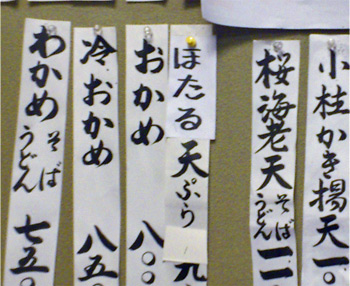 小柱かき揚天 一
桜海老天 そば うどん 一一
ほたる 天ぷら 九
おかめ 八〇〇
冷おかめ 八五〇
わかめ そば うどん 七五〇